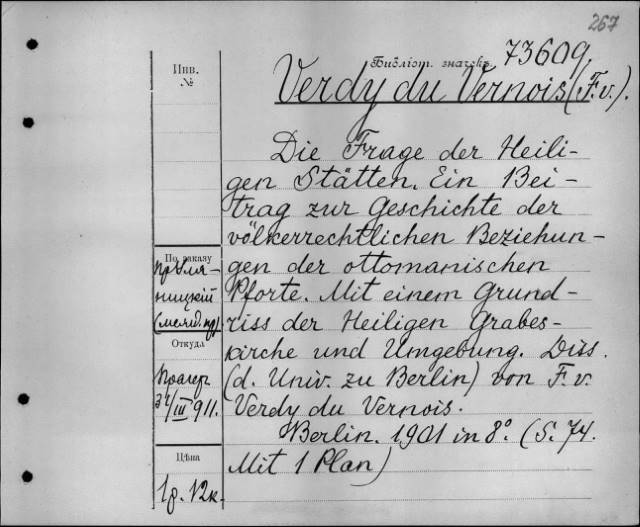 267
Инв.
№
Библіот. значекъ 73609
Verdy du Vernois (F. v.).
Die Frage der Heili-
gen Stätten. Ein Bei-
trag zur Geschichte der
völkerrechtlichen Beziehun-
gen der ottomanischen
Pforte. Mit einem Grund-
riss der Heiligen Grabes-
kirche und Umgebung. Diss.
(d. Univ. zu Berlin) von F. v.
Verdy du Vernois.
Berlin. 1901 in 8°. (S. 74.
Mit 1 Plan)
По заказу
ницкій
Откуда
Прагер
III 911.
Цѣна
1р. 12к.